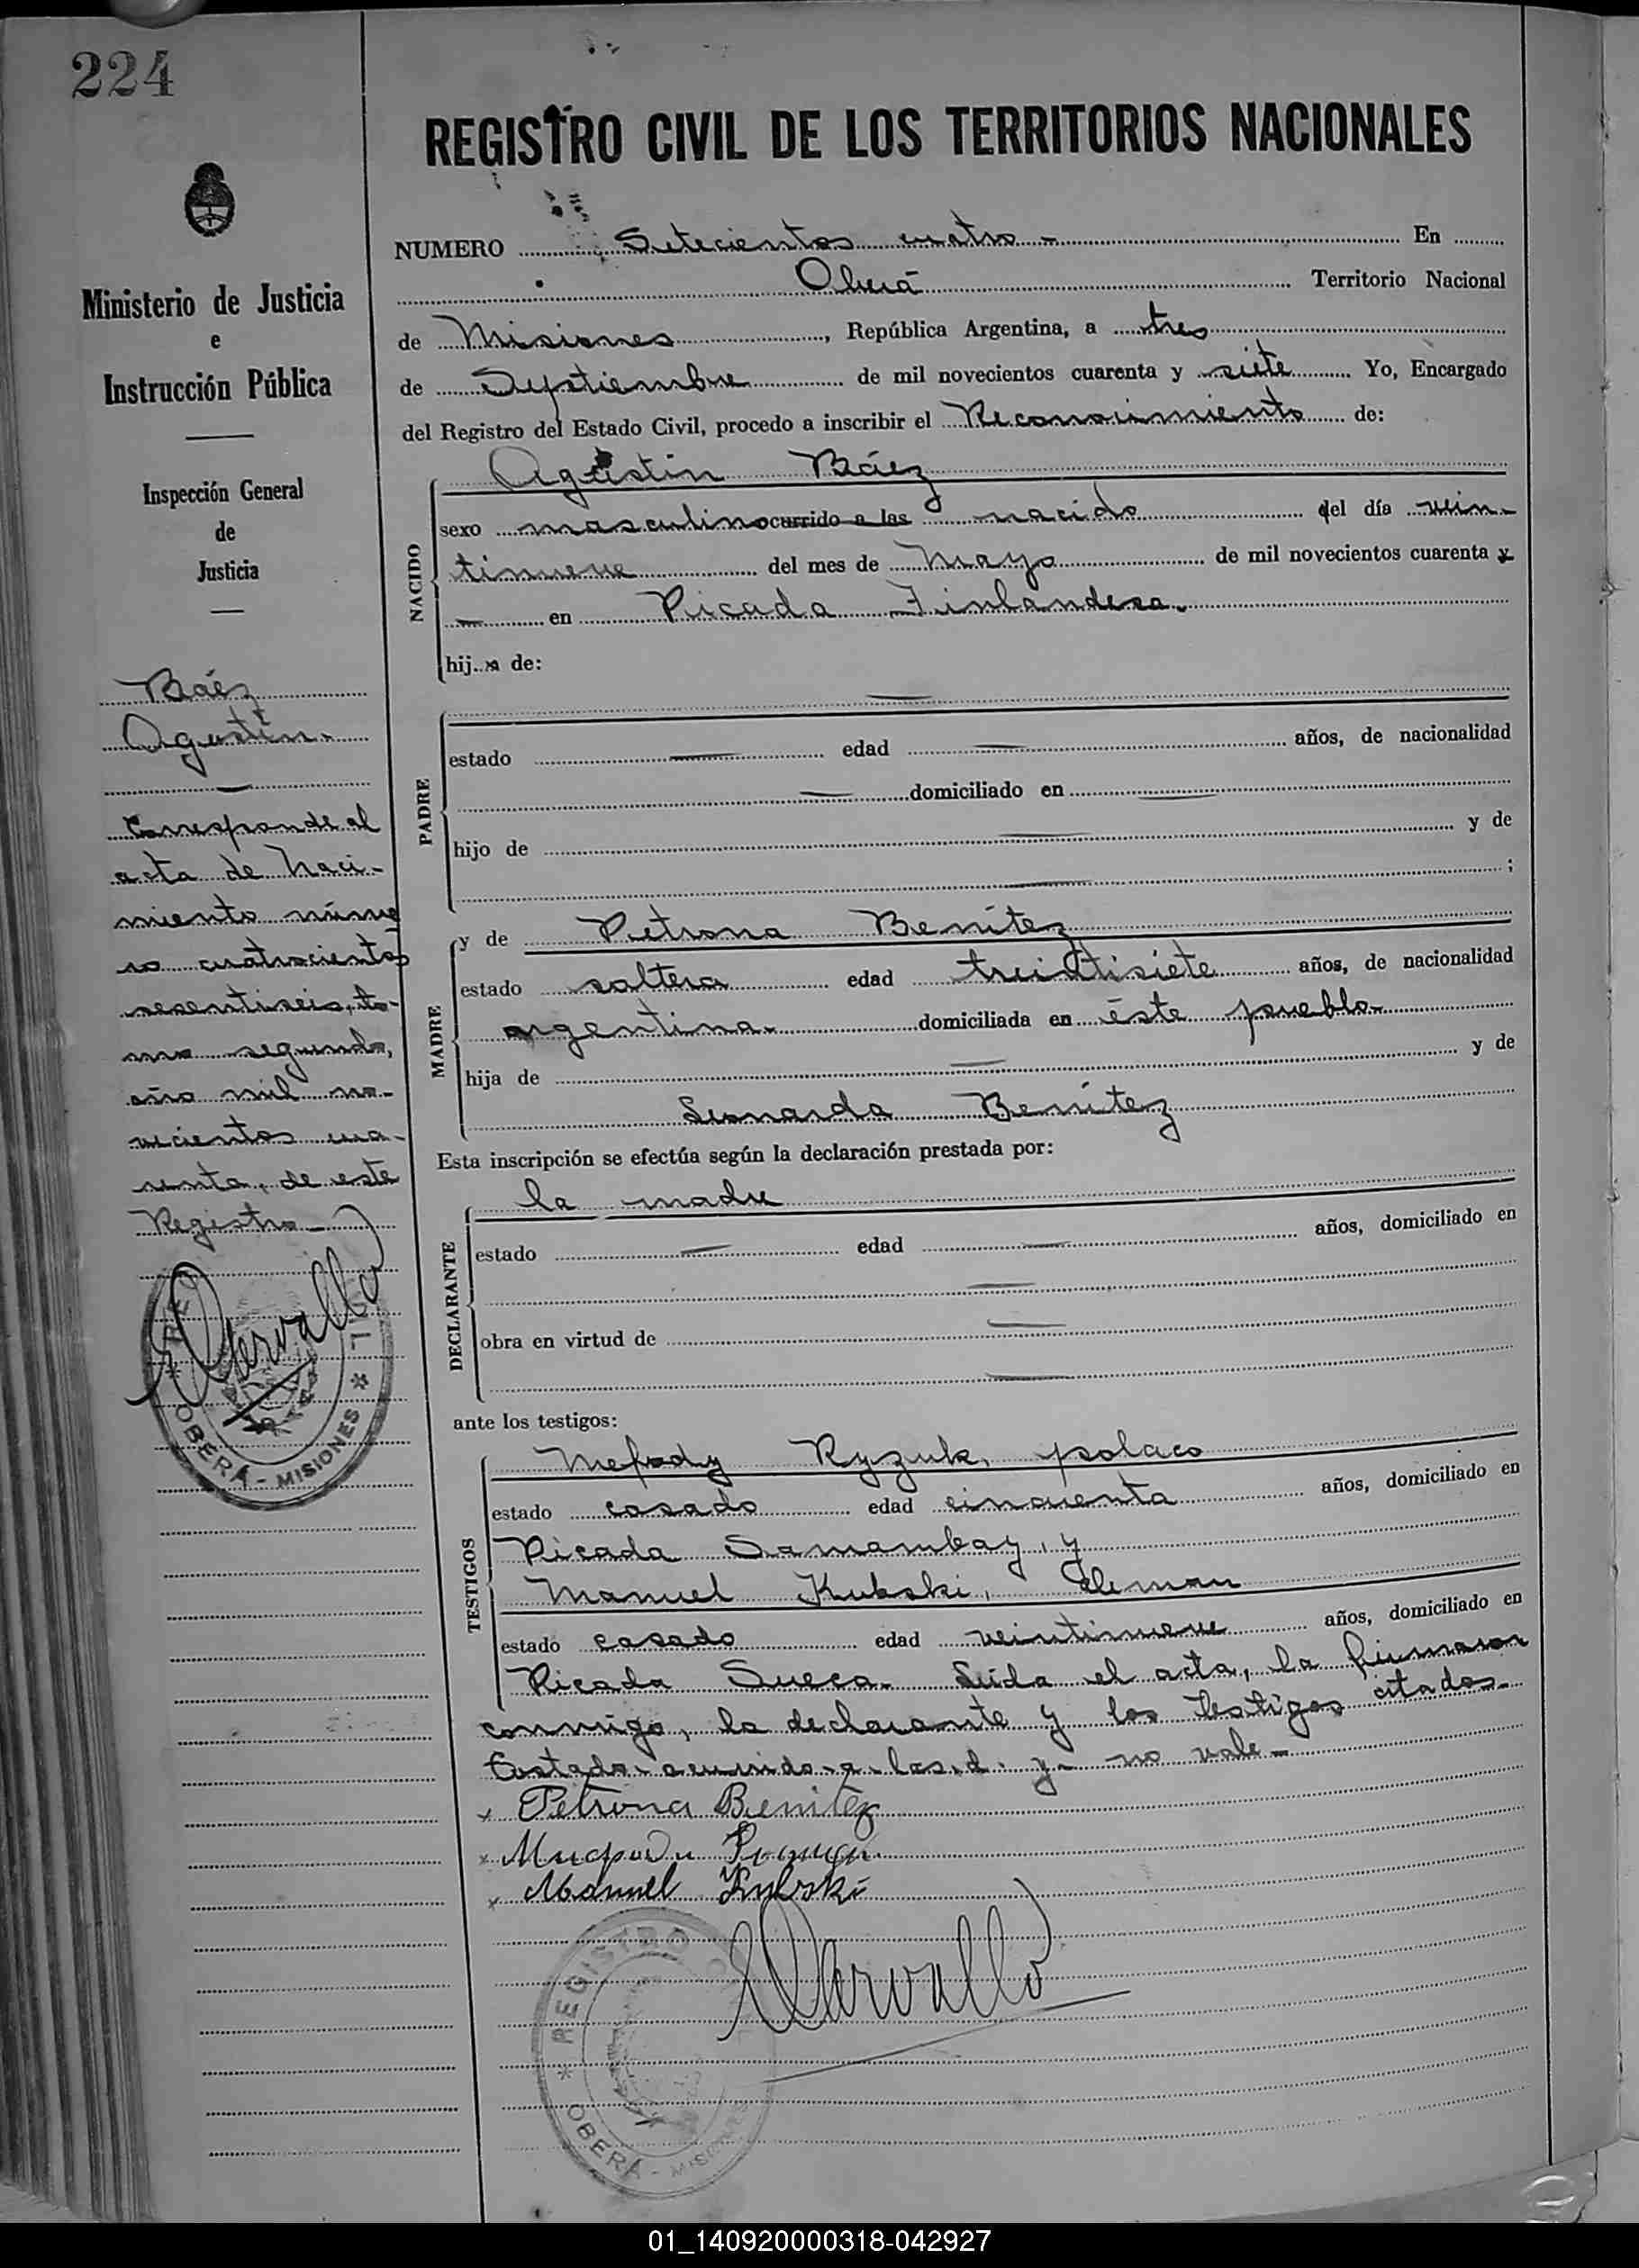 224
REGISTRO CIVIL DE LOS TERRITORIOS NACIONALES
Ministerio de Justicia
e
Instrucción Pública
Inspección General
de
Justicia
NUMERO Setecientos cuatro - En
Oberá Territorio Nacional
de Misiones, República Argentina, a tres
de Septiembre de mil novecientos cuarenta y siete Yo, Encargado
del Registro del Estado Civil, procedo a inscribir el Reconocimiento de:
Agustin Báez
NACIDO
sexo masculino ocurrido a las nacido del día vein-
tinueve del mes de Mayo de mil novecientos cuarenta y
— en Picada Finlandesa.
hijo de:
Báez
Agustín.
—
Corresponde al
acta de Naci-
miento núme
ro cuatrocientos
sesentiseis, to-
mo segundo,
año mil no-
vecientos cua-
renta, de este
Registro -
Dervallo
OBERÁ - MISIONES
PADRE
—
estado — edad — años, de nacionalidad
— domiciliado en —
hijo de — y de
— ;
MADRE
y de Petrona Benítez
estado soltera edad treintisiete años, de nacionalidad
argentina. domiciliada en éste pueblo.
hija de — y de
Leonarda Benítez
Esta inscripción se efectúa según la declaración prestada por:
DECLARANTE
la madre
estado — edad — años, domiciliado en
—
obra en virtud de —
—
ante los testigos:
TESTIGOS
Mefody Ryzuk, polaco
estado casado edad cincuenta años, domiciliado en
Picada Samambay, y
Manuel Kubski, Aleman
estado casado edad veintinueve años, domiciliado en
Picada Sueca. Leída el acta, la firmaron
conmigo, la declarante y los testigos citados.
Testado-ocurrido-a-las-d. y- no vale-
x Petrona Benitez
x
x Manuel Kubski
Dervallo
REGISTRO
OBERÁ - MISIONES
01_140920000318-042927